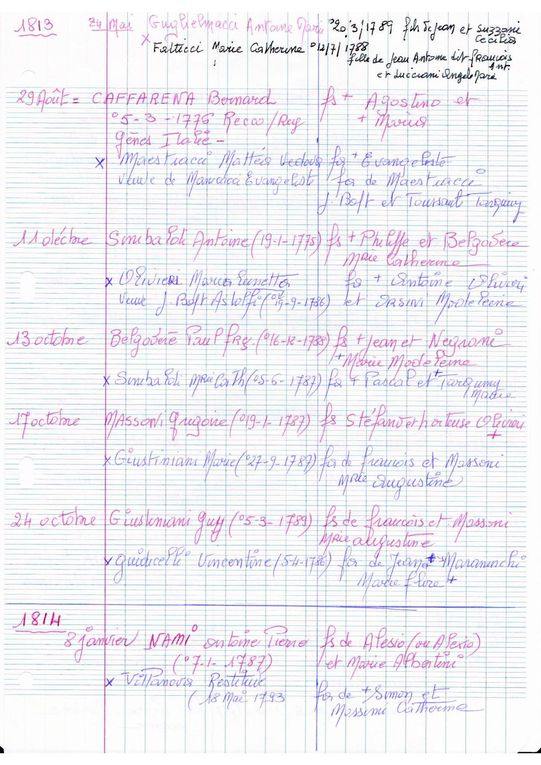 1813 24 Mai Guglielmacci Antoine Marie °20/3/1789 fils de Jean et Suzzoni Cécilia
x Fattacci Marie Catherine °12/7/1788
fille de Jean Antoine dit françois Ant.
et Lucciani Angela Mara
29 Août = CAFFARENA Bernard fs + Agostino et
°5-3-1776 Recco/Reg + Maria
gênes Italie -
x Maestracci Mattéa Vedova fa + Evangeliste
Veuve de Evangelisti fa de Maestracci
J. Bapt et Toussaint Tarquiny
11 décbre Simbaldi Antoine (19-1-1775) fs + Philippe et Belgodère
Mrie Catherine
x Olivieri Maria Limetta fa + Antoine Olivieri
Veuve J. Bapt Astolfi et Orsini Madeleine
13 octobre Belgodère Paul frs. (°16-12-1788) fs + Jean et Negroni
+ Marie Madeleine
x Simbaldi Mrie Cath (°5-6-1787) fa + Pascal et + Tarquiny
Maria
17 octobre MASSONI grégoire (°19-1-1787) fs Stéfano et hortense Olivieri
+
x Giustiniani Marie (°27-9-1787) fa de françois et Massoni
Mrie Augustine
24 octobre Giustiniani (°5-3-1789) fs de francois et Massoni
Mrie augustine
x guidicelli Vincentine (5-4-1786) fa de Jean + Maraninchi
Marie flore +
1814
8 janvier NAMI Antoine Pierre fs de Alesio (ou Alexio)
(°7-1-1787) et Marie Albertini
x Villanova Restitue fa de + Simon et
(18 Mai 1793 Massimi Catherine